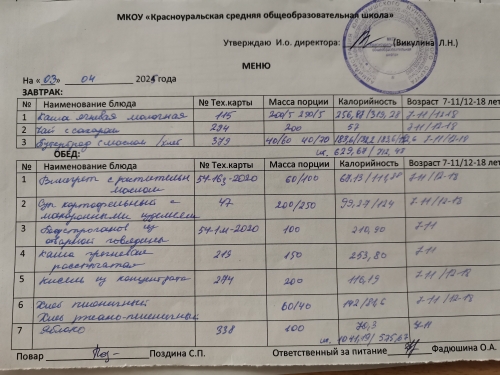 МКОУ «Красноуральская средняя общеобразовательная школа»
Утверждаю И.о. директора: (Викулина Л.Н.)
МЕНЮ
На «03» 04 2025 года
ЗАВТРАК:
№ Наименование блюда № Тех.карты Масса порции Калорийность Возраст 7-11/12-18 лет
1 Каша ячневая молочная 115 200/5 250/5 7-11/12-18
2 Чай с сахаром 294 200 57 7-11/12-18
3 Бутерброд с маслом /хлеб 379 40/60 40/70 7-11/12-18
ОБЕД:
№ Наименование блюда № Тех.карты Масса порции Калорийность Возраст 7-11/12-18 лет
1 Винегрет с растительным маслом 54-16з-2020 60/100 7-11/12-18
2 Суп картофельный с макаронными изделиями 47 200/250 99,27/124 7-11/12-18
3 Бефстроганов из отварной говядины 54-1м-2020 100 210,90 7-11
4 Каша гречневая рассыпчатая 219 150 253,80 7-11
5 Кисель из концентрата 274 200 118,19 7-11/12-18
6 Хлеб пшеничный
Хлеб ржано-пшеничный 60/40 7-11/12-18
7 Яблоко 338 100 70,3 7-11
Повар Поздина С.П. Ответственный за питание Фадюшина О.А.